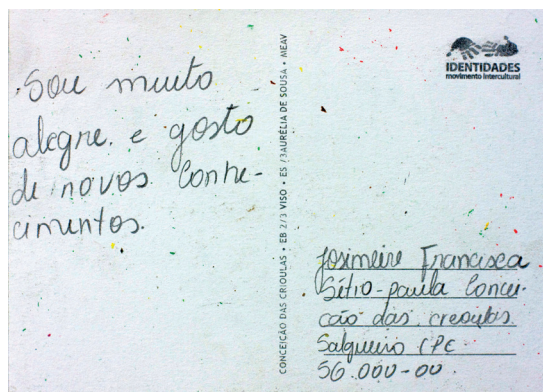 Sou muito
alegre. e gosto
de novos Conhe-
cimentos.
CONCEIÇÃO DAS CRIOULAS • EB 2/3 VISO • ES /3AURÉLIA DE SOUSA • MEAV
IDENTIDADES
movimento intercultural
Josimeire Francisca
Sítio-paula Concei-
cão das creoulas
Salgueiro /PE
56.000-00